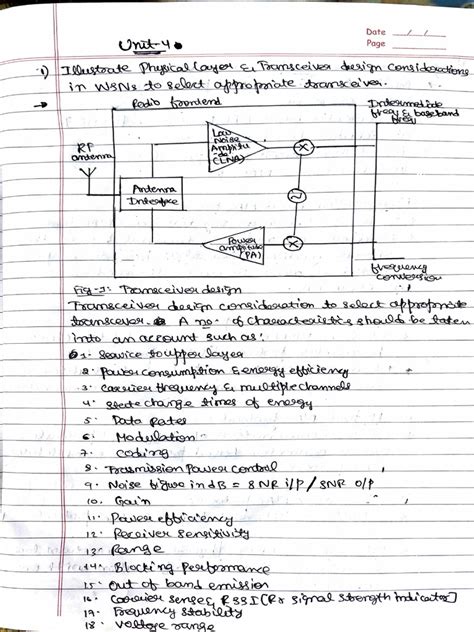 Date  / /
Page
Unit-4
1) Illustrate Physical Layer & Transceiver design considerations
in WSNs to select appropriate transceiver.
→ Radio frontend
Intermediate
freq & baseband
freq
RF
antenna
Low
Noise
Amplitu
-de
(LNA)
Antenna
Interface
Power
amplitude
(PA)
frequency
conversion
Fig-1: Transceiver design
Transceiver design consideration to select appropriate
transceiver. A no. of characteristics should be taken
into an account such as:
1. Service to upper layer
2. Power consumption & energy efficiency
3. Carrier frequency & multiple channels
4. State change times of energy
5. Data Rates
6. Modulation
7. coding
8. Transmission Power control
9. Noise figure in dB = SNR i/p / SNR o/p
10. Gain
11. Power efficiency
12. Receiver Sensitivity
13. Range
14. Blocking performance
15. Out of band emission
16. Carrier sense & RSSI [Rx signal strength indicator]
17. Frequency stability
18. Voltage range